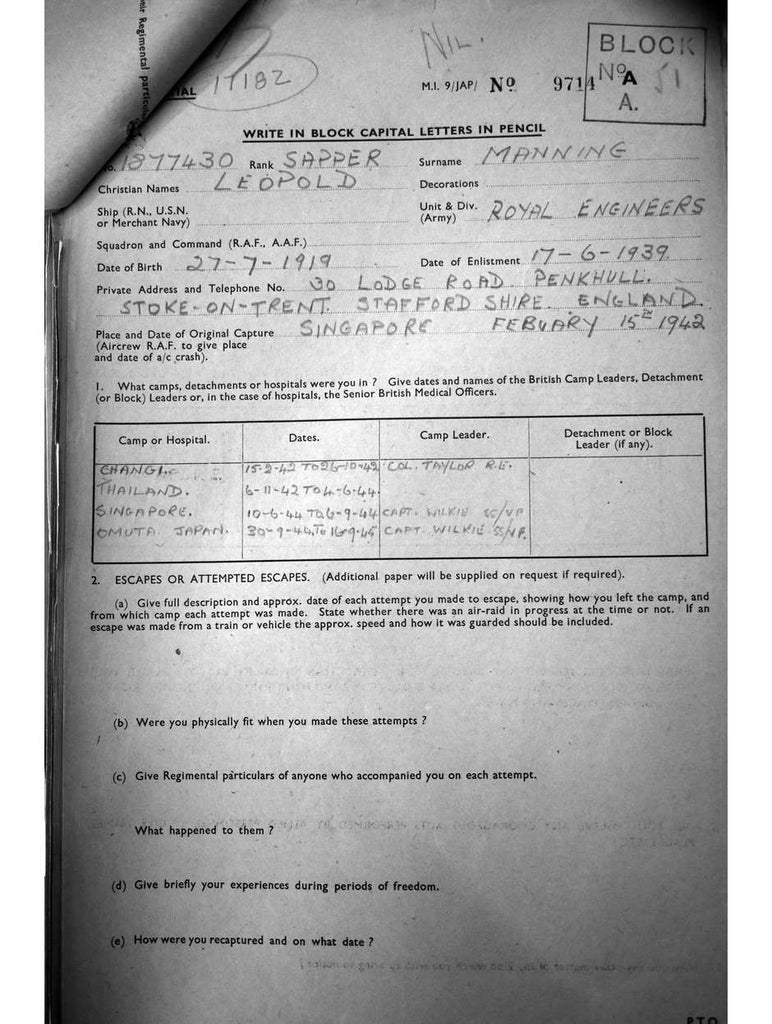 eir Regimental particul
IAL
17182
NIL.
M.I. 9/JAP/ No 9714
BLOCK
No A 51
A.
WRITE IN BLOCK CAPITAL LETTERS IN PENCIL
No. 1877430 Rank SAPPER Surname MANNING
Christian Names LEOPOLD Decorations
Ship (R.N., U.S.N. or Merchant Navy) Unit & Div. (Army) ROYAL ENGINEERS
Squadron and Command (R.A.F., A.A.F.)
Date of Birth 27-7-1919 Date of Enlistment 17-6-1939.
Private Address and Telephone No. 30 LODGE ROAD PENKHULL.
STOKE-ON-TRENT. STAFFORD SHIRE. ENGLAND.
Place and Date of Original Capture SINGAPORE FEBUARY 15TH 1942
(Aircrew R.A.F. to give place
and date of a/c crash).
1. What camps, detachments or hospitals were you in ? Give dates and names of the British Camp Leaders, Detachment
(or Block) Leaders or, in the case of hospitals, the Senior British Medical Officers.
Camp or Hospital. Dates. Camp Leader. Detachment or Block Leader (if any).
CHANGI. 15-2-42 TO 26-10-42 COL. TAYLOR R.E.
THAILAND. 6-11-42 TO 4-6-44.
SINGAPORE. 10-6-44 TO 6-9-44 CAPT. WILKIE SS/VF
OMUTA JAPAN. 30-9-44 TO 16-9-45 CAPT. WILKIE SS/VF.
2. ESCAPES OR ATTEMPTED ESCAPES. (Additional paper will be supplied on request if required).
(a) Give full description and approx. date of each attempt you made to escape, showing how you left the camp, and
from which camp each attempt was made. State whether there was an air-raid in progress at the time or not. If an
escape was made from a train or vehicle the approx. speed and how it was guarded should be included.
(b) Were you physically fit when you made these attempts ?
(c) Give Regimental particulars of anyone who accompanied you on each attempt.
What happened to them ?
(d) Give briefly your experiences during periods of freedom.
(e) How were you recaptured and on what date ?
PTO